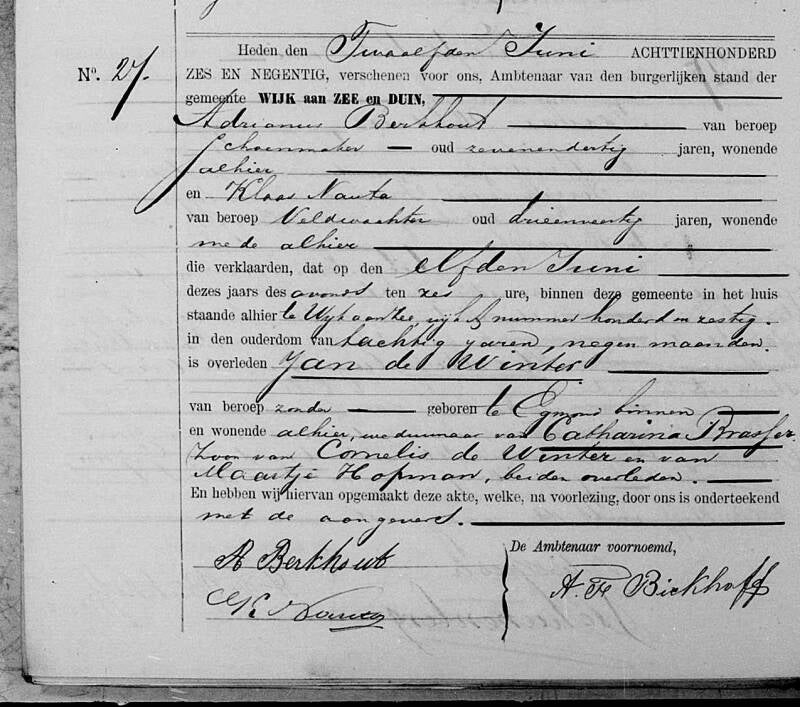 Heden den Twaalfden Juni ACHTTIENHONDERD
No. 27. ZES EN NEGENTIG, verschenen voor ons, Ambtenaar van den burgerlijken stand der
gemeente WIJK aan ZEE en DUIN,
Adrianus Berkhout van beroep
Schoenmaker oud zevenendertig jaren, wonende
alhier
en Klaas Nauta
van beroep Veldwachter oud drieenveertig jaren, wonende
mede alhier
die verklaarden, dat op den elfden Juni
dezes jaars des avonds ten zes ure, binnen deze gemeente in het huis
staande alhier te Wijk aan Zee, wijk nummer honderd en zestig.
in den ouderdom van tachtig jaren, negen maanden.
is overleden Jan de Winter
van beroep zonder geboren te Egmond binnen
en wonende alhier, weduwnaar van Catharina Brasser
zoon van Cornelis de Winter en van
Maartje Hopman, beiden overleden.
En hebben wij hiervan opgemaakt deze akte, welke, na voorlezing, door ons is onderteekend
met de aangevers.
De Ambtenaar voornoemd,
A Berkhout
A. F. Bickhoff
K Nauta